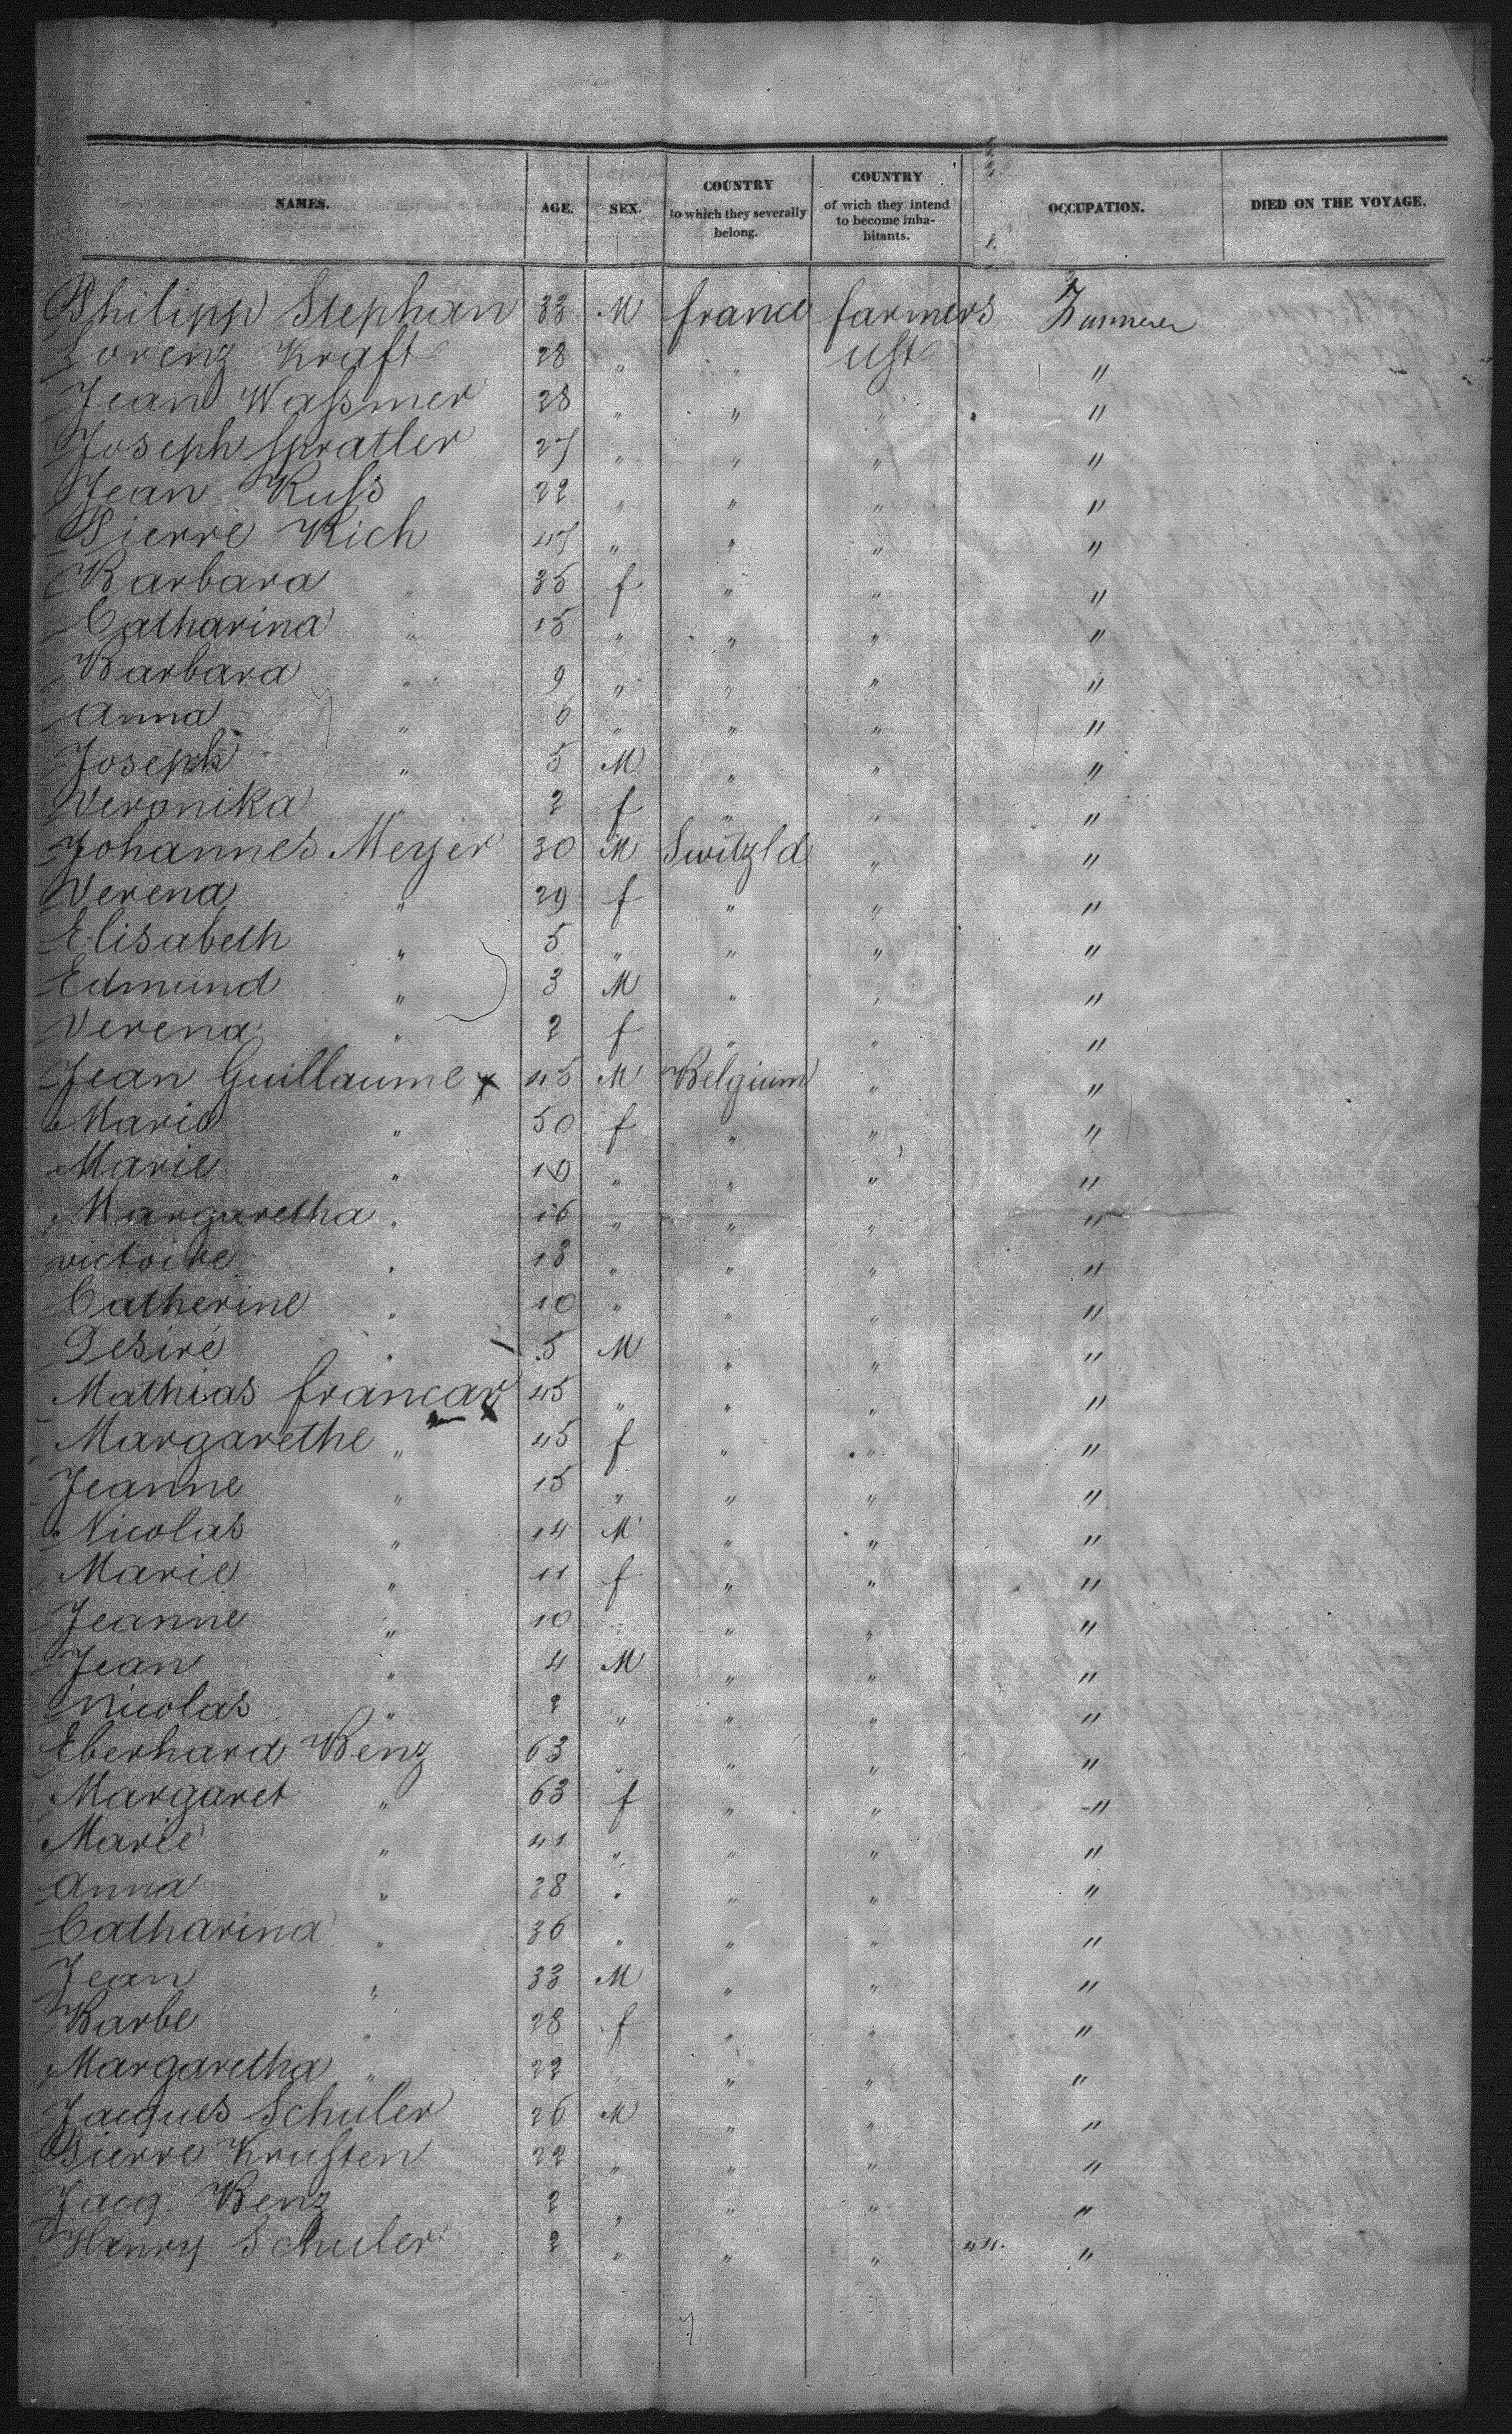 NAMES. AGE. SEX. COUNTRY to which they severally belong. COUNTRY of wich they intend to become inha- bitants. OCCUPATION. DIED ON THE VOYAGE.
Philipp Stephan 33 M france farmers Farmer
Lorenz Kraft 28 " " USt "
Jean Waßmer 28 " " " "
Joseph Spratler 27 " " " "
Jean Kuſs 22 " " " "
Pierre Rich 47 " " " "
Barbara " 35 f " " "
Catharina " 15 " " " "
Barbara " 9 " " " "
Anna " 6 " " " "
Joseph " 5 M " " "
Veronika " 2 f " " "
Johannes Meyer 30 M Switzld " "
Verena " 29 f " " "
Elisabeth " 5 " " " "
Edmund " 3 M " " "
Verena " 2 f " " "
Jean Guillaume x 45 M Belgium " "
Marie " 50 f " " "
Marie " 19 " " " "
Margaretha " 16 " " " "
victoire " 13 " " " "
Catherine " 10 " " " "
Desiré " 5 M " " "
Mathias francar x 45 " " " "
Margarethe " 45 f " " "
Jeanne " 15 " " " "
Nicolas " 14 M " " "
Marie " 11 f " " "
Jeanne " 10 " " " "
Jean " 4 M " " "
Nicolas " 2 " " " "
Eberhard Benz 63 " " " "
Margaret " 63 f " " "
Marie " 41 " " " "
Anna " 38 " " " "
Catharina " 36 " " " "
Jean " 33 M " " "
Barbe " 28 f " " "
Margaretha " 22 " " "
Jacques Schuler 26 M " " "
Pierre Kruſten 22 " " " "
Jacq. Benz 2 " " " "
Henry Schuler 2 " " " 44. "